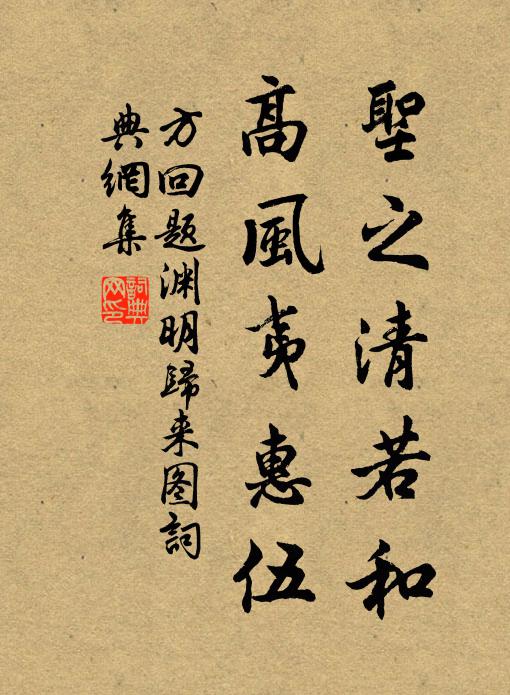 聖之清若和
高風夷惠伍
方回题渊明歸来图詞
典網集
詞典
网印